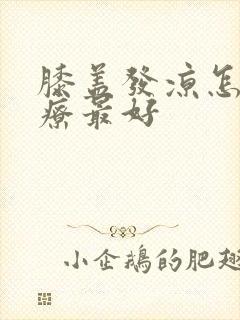 膝盖發凉怎
療最好
小企鵝的肥翅